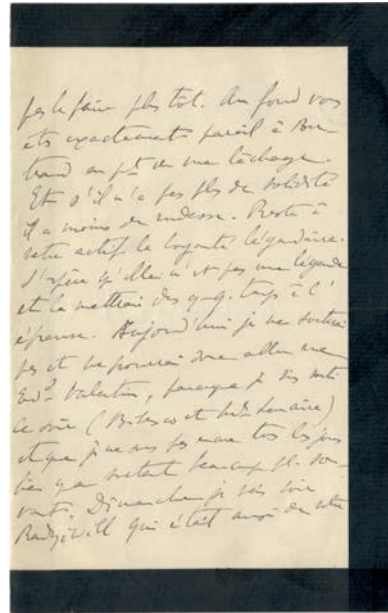 pas le faire plus tôt. Au fond vous
êts exactement pareil à Ber
trand au pt de vue lâchage.
Et s'il n'a pas pls de solidité
il a moins de rudesse. Reste à
votre actif la loyauté légendaire.
J'espère qu'elle n'est pas une légende
et la mettrai des q.q. temps à l'
épreuve. Aujourd'hui je ne sortirai
pas et ne pourrai donc aller
Valentin, parce que je suis sorti
ce soir (Bibesco et Lemaire)
et que je ne suis pas tos les jours
bien que sortant beaucoup pl. sou
vent. Dimanche je vais voir
Radziwill qui était aussi de votre